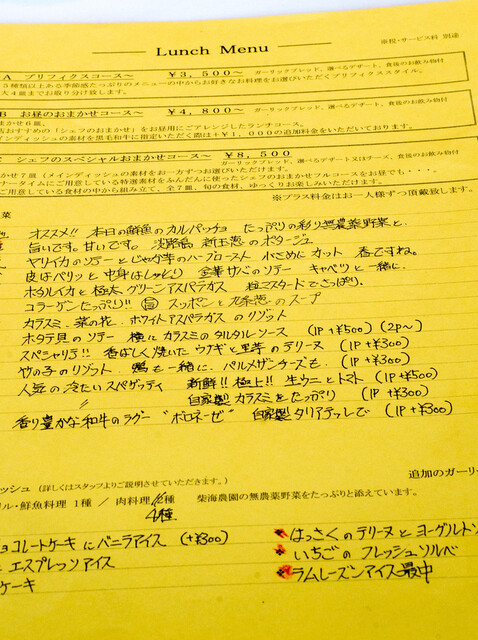 Lunch Menu
※税・サービス料 別途
A プリフィクスコース～ ￥3,500～ ガーリックブレッド、選べるデザート、食後のお飲み物付
5種類以上ある季節感たっぷりのメニューの中からお好きなお料理をお選びいただくプリフィクススタイル。
大4皿までお取り分け致します。
B お昼のおまかせコース～ ￥4,800～ ガーリックブレッド、選べるデザート、食後のお飲み物付
まかせ6皿。
おすすめの「シェフのおまかせ」をお昼用にアレンジしたランチコース。
インディッシュの素材を黒毛和牛に指定いただく際は＋￥1,000の追加料金をいただいております。
C シェフのスペシャルおまかせコース～ ￥8,500
ガーリックブレッド、選べるデザート又はチーズ、食後のお飲み物付
かせ7皿(メインディッシュの素材をお一方ずつお選びいただけます。
ナータイムにご用意している特選素材をふんだんに使ったシェフのおまかせフルコースをお昼でも・・・
ご用意している食材の中から組み立て、全7皿、旬の食材、ゆっくりお楽しみいただけます。
※プラス料金はお一人様ずつ頂戴致します。
菜
オススメ!! 本日の鮮魚のカルパッチョ たっぷりの彩り無農薬野菜と
旨いです。甘いです。 淡路島 新玉葱のポタージュ
ヤリイカのソテーとじゃが芋のハーブロースト 小さめにカット 春ですね。
皮はパリッと中身はしっとり 金華サバのソテー キャベツと一緒に
ホタルイカと極太グリーンアスパラガス 粒マスタードでさっぱり。
コラーゲンたっぷり!! 旨 スッポンと九条葱のスープ
カラスミ、菜の花、ホワイトアスパラガスのリゾット
ホタテ貝のソテー 横にカラスミのタルタルソース (1P+¥500) (2P~)
スペシャリテ!! 香ばしく焼いたウナギと里芋のテリーヌ (1P+¥300)
竹の子のリゾット 鴨も一緒に、パルメザンチーズも。 (1P+¥300)
人気の冷たいスパゲッティ 新鮮!! 極上!! 生ウニとトマト (1P+¥500)
〃 自家製カラスミをたっぷり (1P+¥300)
香り豊かな和牛のラグー "ボロネーゼ" 自家製タリアテッレで (1P+¥300)
ィッシュ (詳しくはスタッフよりご説明させていただきます。)
追加のガーリ
リル・鮮魚料理 1種 / 肉料理 種 柴海農園の無農薬野菜をたっぷりと添えています。
4種
ョコレートケーキにバニラアイス (+¥300)
エスプレッソアイス
ケーキ
はっさくのテリーヌとヨーグルトソ
いちごのフレッシュソルベ
ラムレーズンアイス最中